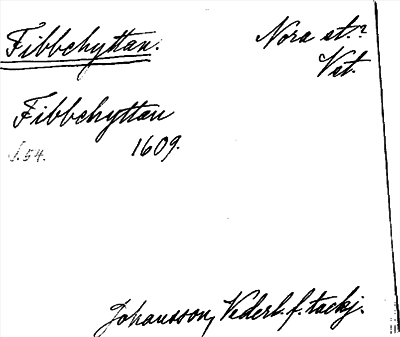 Fibbehyttan. Nora st?
Vst.
Fibbehyttan
s. 54. 1609.
Johansson, Vederl. f. tackj.